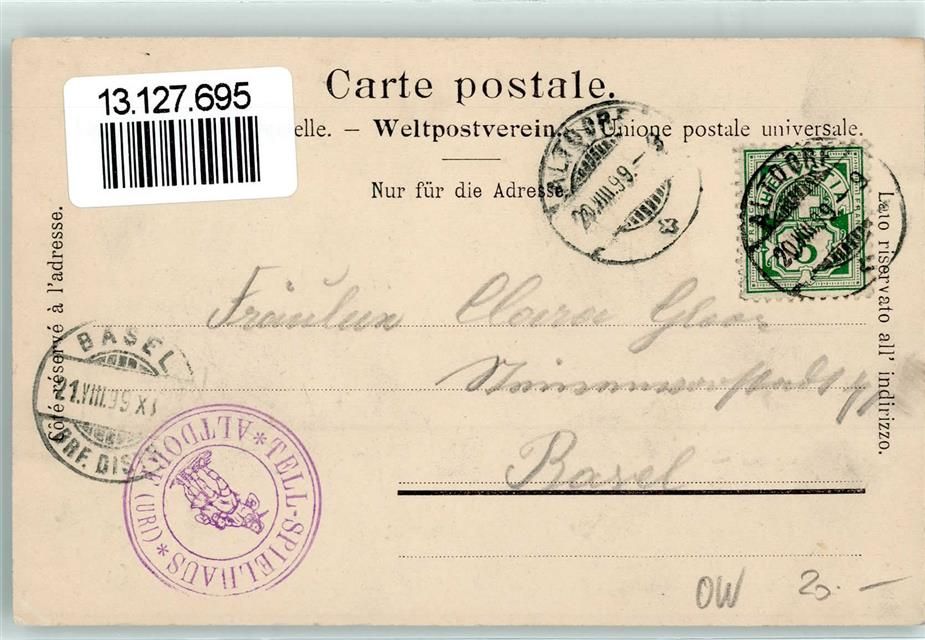 Carte postale.
13.127.695
elle. – Weltpostverein. – Unione postale universale.
Nur für die Adresse.
Côté réservé à l'adresse.
Lato riservato all' indirizzo.
ALTDORF
20.VIII.99.–
ALTDORF
20.VIII.99
HELVETIA
5
Fräulein Clara
Basel
BASEL
21.VIII.99
BRF. DIS
*TELL-SPIELHAUS*
ALTDORF (URI)
OW 20.–